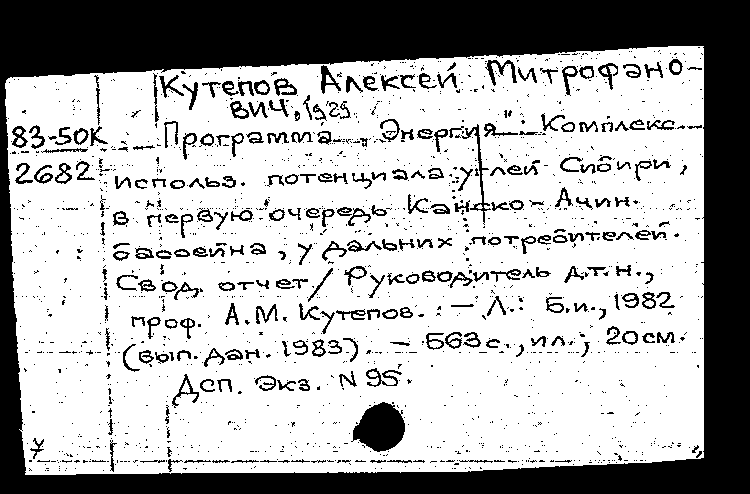 Кутепов Алексей Митрофано-
вич, 1929
83-50К Программа "Энергия": Комплекс.
2682 использ. потенциала углей Сибири,
в первую очередь Канско-Ачин.
бассейна, у дальних потребителей.
Свод. отчет / Руководитель д.т.н.,
проф. А.М. Кутепов. - Л.: Б.и., 1982
(вып. дан. 1983). - 563 с., ил.; 20 см.
Дсп. Экз. N 95.